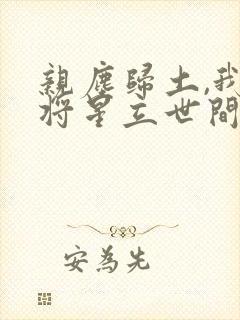 親塵歸土,我
將星立世間
安為先